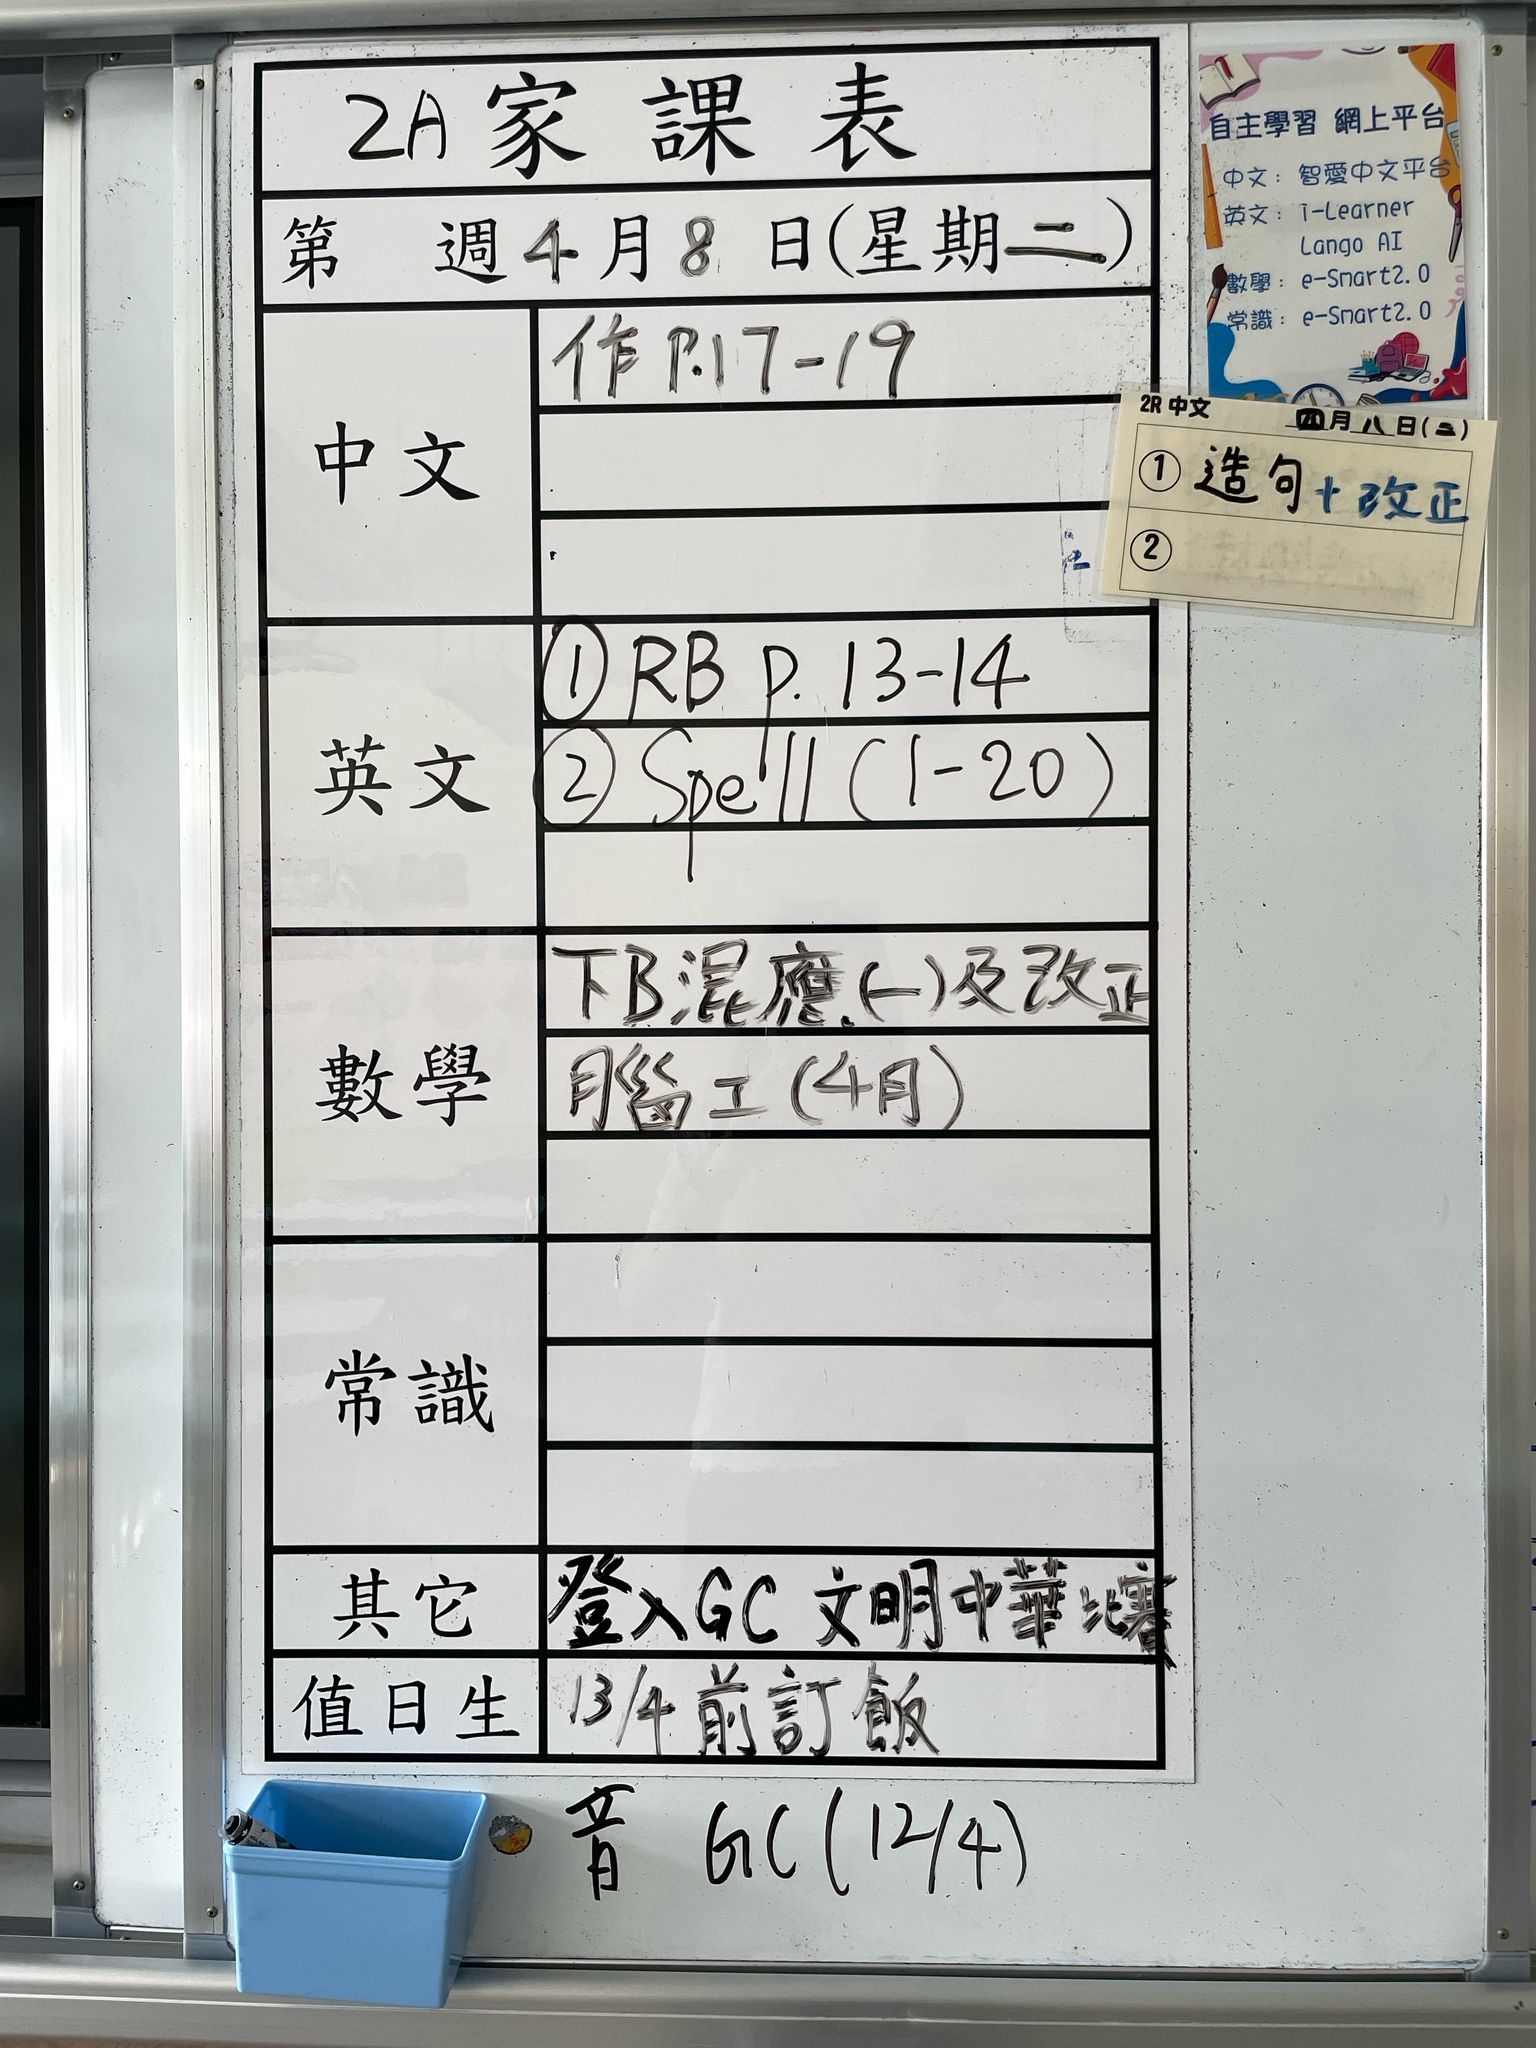 2A 家課表
第 週 4月8日(星期二)
中文
作 P.17-19
英文
① RB p. 13-14
② Spell (1-20)
數學
下B混應.(一)及改正
腦工(4月)
常識
其它
登入GC 文明中華比賽
值日生
13/4前訂飯
音 GC(12/4)
自主學習 網上平台
中文: 智愛中文平台
英文: i-Learner
Lango AI
數學: e-Smart2.0
常識: e-Smart2.0
2R 中文 四月八日(二)
① 造句+改正
②